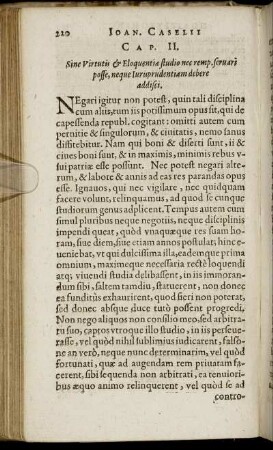 220 IOAN. CASELII
CAP. II.
Sine Virtutis & Eloquentiæ studio nec remp. seruari
posse, neque Iurisprudentiam debere
addisci.
NEgari igitur non potest, quin tali disciplina
cum aliis, tum iis potissimum opus sit, qui de
capessenda republ. cogitant: omitti autem cum
pernitie & singulorum, & ciuitatis, nemo sanus
diffitebitur. Nam qui boni & diserti sunt, ii &
ciues boni sunt, & in maximis, minimis rebus v-
sui patriæ esse possunt. Nec potest negari alte-
rum, & labore & annis ad eas res parandas opus
esse. Ignauos, qui nec vigilare, nec quidquam
facere volunt, relinquamus, ad quod se cunque
studiorum genus adplicent. Tempus autem cum
simul pluribus neque negotiis, neque disciplinis
impendi queat, quòd vnaquæque res suam ho-
ram, siue diem, siue etiam annos postulat, hinc e-
ueniebat, vt qui dulcissima illa, eademque prima
omnium, maximeque necessaria rectè loquendi
atq. viuendi studia delibassent, in iis immoran-
dum sibi, saltem tamdiu, statuerent, non donec
ea funditùs exhaurirent, quod fieri non poterat,
sed donec absque duce tutò possent progredi.
Non nego aliquos non consilio meo, sed arbitra-
tu suo, captos vtroque illo studio, in iis perseue-
rasse, vel quòd nihil sublimius iudicarent, falsò-
ne an verò, neque nunc determinarim, vel quòd
fortunati, quæ ad augendam rem priuatam fa-
cerent, sibi sequenda non arbitrati, ea tenuiori-
bus æquo animo relinquerent, vel quòd se ad
contro-